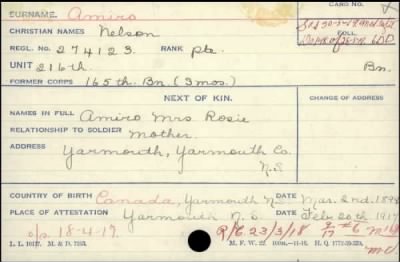 SURNAME Amiro CARD NO.
CHRISTIAN NAMES Nelson
REGL. NO. 274123 RANK Pte. FOLL.
UNIT 216th. Bn.
FORMER CORPS 165th. Bn. (3 mos.)
NEXT OF KIN. CHANGE OF ADDRESS
NAMES IN FULL Amiro Mrs Rosie
RELATIONSHIP TO SOLDIER Mother.
ADDRESS Yarmouth, Yarmouth Co.
N.S
COUNTRY OF BIRTH Canada, Yarmouth N.S DATE Mar. 2nd. 189
PLACE OF ATTESTATION Yarmouth N. S DATE Feb. 20th 1917
o/s 18-4-17. R/C 23/3/18
M. F. W. 22.